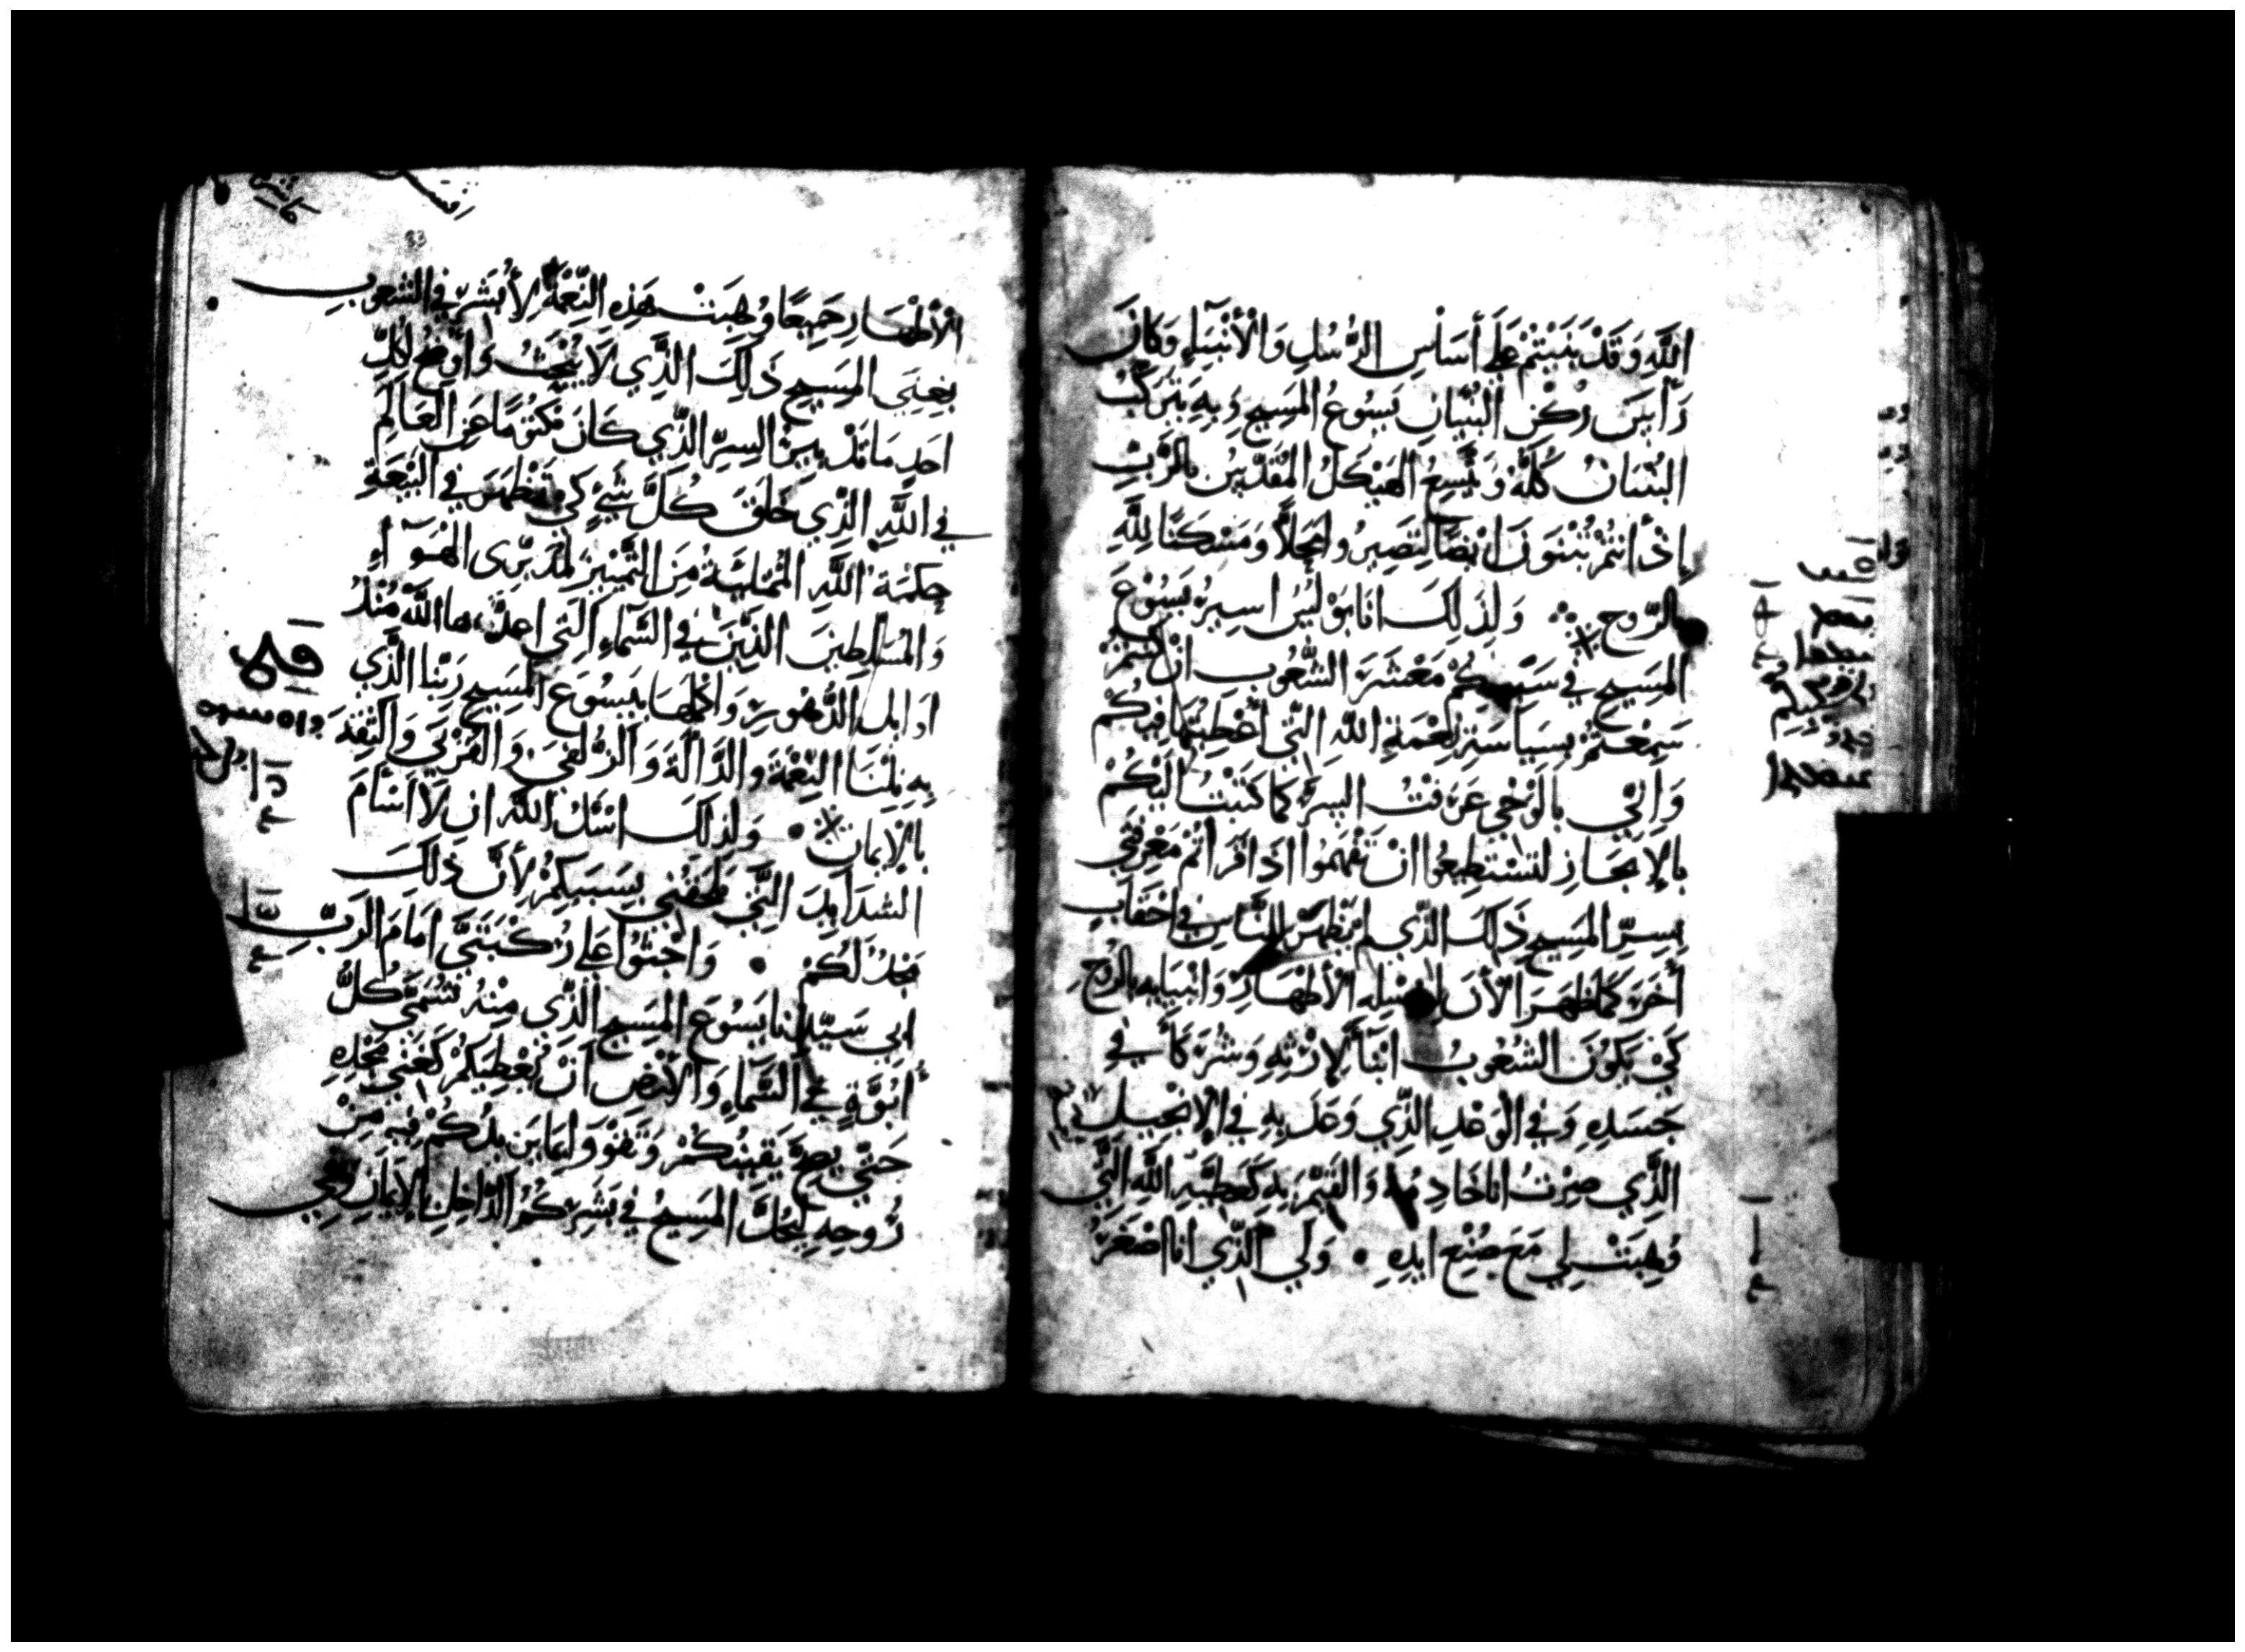 اللَّهِ وَقَدْ بُنِيْتُمْ عَلَى أَسَاسِ الرُّسُلِ وَالْأَنْبِيَاءِ وَكَانَ
رَأسَ رُكْنِ الْبُنْيَانِ يَسُوعُ الْمَسِيحِ وَبِهِ يَتَرَكَّبُ
الْبُنْيَانُ كُلَّهُ وَيَتَّسِعُ الْهَيْكَلُ الْمُقَدَّسُ بِالرَّبِّ
إِذْ أَنْتُمْ تُبْنَوْنَ أَيْضًا لِتَصِيرُوا مَحِلاًّ وَمَسْكَنًا لِلَّهِ
بِالرُّوحِ وَلِذَلِكَ انَا بَوْلُسُ اسِيرُ يَسُوْعَ
الْمَسِيحِ فِي سَبَبِكُمْ مَعْشَرَ الشُّعُوبِ انْ كُنْتُمْ
سَمِعْتُمْ بِسِيَاسَةِ نِعْمَةِ اللَّهِ الَّتِي أُعْطِيْتُهَا فِيكُمْ
وَإِنِّي بِالْوَحْيِ عَرَفْتُ السِّرَّ كَمَا كَتَبْتُ الَيْكُمْ
بِالإِيجَازِ لِتَسْتَطِيعُوا انْ تَفْهَمُوا اذَا قَرَأْتُمْ مَعْرِفَتِي
بِسِرِّ الْمَسِيحِ ذَلِكَ الَّذِي لَمْ يَظْهَرْ لِلنَّاسِ فِي احْقَابٍ
أُخَرَ كَمَا ظَهَرَ الْأَنَ لِرُسُلِهِ الْأَطْهَارِ وَانْبِيَايِهِ بِالرُّوحِ
كَيْ يَكُونَ الشُّعُوبُ ابْنَاءً لِإِرْثِهِ وَشُرَكَاءَ فِي
جَسَدِهِ وَفِي الْوَعْدِ الَّذِي وَعَدَ بِهِ فِي الْإِنْجِيلِ
الَّذِي صِرْتُ انَا خَادِمُهُ وَالْقَيِّمَ بِهِ كَعَطِيَّةِ اللَّهِ الَّتِي
وُهِبَتْ لِي مَعَ صُنْعِ ايْدِهِ وَلِي الَّذِي انَا اصْغَرُ
الْأَطْهَارِ جَمِيعًا وُهِبَتْ هَذِهِ النِّعْمَةُ لِأُبَشِّرَ فِي الشُّعُوبِ
بِغِنَى الْمَسِيحِ ذَلِكَ الَّذِي لَا يُبْحَثُ وَاوَضِّحُ لِكُلِّ
احَدٍ مَا تَدْبِيرُ السِّرِّ الَّذِي كَانَ مَكْتُومًا عَنِ الْعَالَمِ
فِي اللَّهِ الَّذِي خَلَقَ كُلَّ شَيْءٍ كَيْ تَظْهَرَ فِي الْبِيعَةِ
حِكْمَةُ اللَّهِ الْمُمْتَلِيَةُ مِنَ التَّمْيِيزِ لِمُدَبِّرِي الْهَوَآءِ
وَالْمُسَلَّطِينَ الَّذِينَ فِي السَّمَاءِ الَّتِي اعدَّهَا اللَّهُ مُنْذُ
اوَايِلِ الدُّهُورِ وَاكْمَلَهَا بِيَسُوْعَ الْمَسِيحِ رَبِّنَا الَّذِي
بِهِ نِلْنَا النِّعْمَةَ وَالدَّالَّةَ وَالزُّلْفَى وَالْقُرْبَى وَالثِّقَةَ
بِالْإِيْمَانِ وَلِذَلِكَ اسْئَلُ اللَّهَ ان لَا اسْأَمَ
الشَدَايِدَ الَّتِي تَلْحَقُنِي بِسَبَبِكُمْ لِأَنَّ ذَلِكَ
مَجْدٌ لَكُمْ وَاجْثُوا عَلَى رُكْبَتَيَّ امَامَ الرَّبِّ
ابِي سَيِّدِنَا يَسُوعَ الْمَسِيحِ الَّذِي مِنْهُ تُسَمَّى كُلُّ
أُبُوَّةٍ فِي السَّمَاءِ وَالْأَرْضِ أَنْ يُعْطِيَكُمْ كَغِنَى مَجْدِهِ
حَتَّى يَصِحَّ يَقِينُكُمْ وَتَقْوَوْا بِمَا يَزِيدُكُمْ فِيهِ مِنْ
رُوحِهِ لِيَحُلَّ الْمَسِيحُ فِي بَشَرِكُمُ الدَّاخِلِ بِالْإِيْمَانِ وَفِي